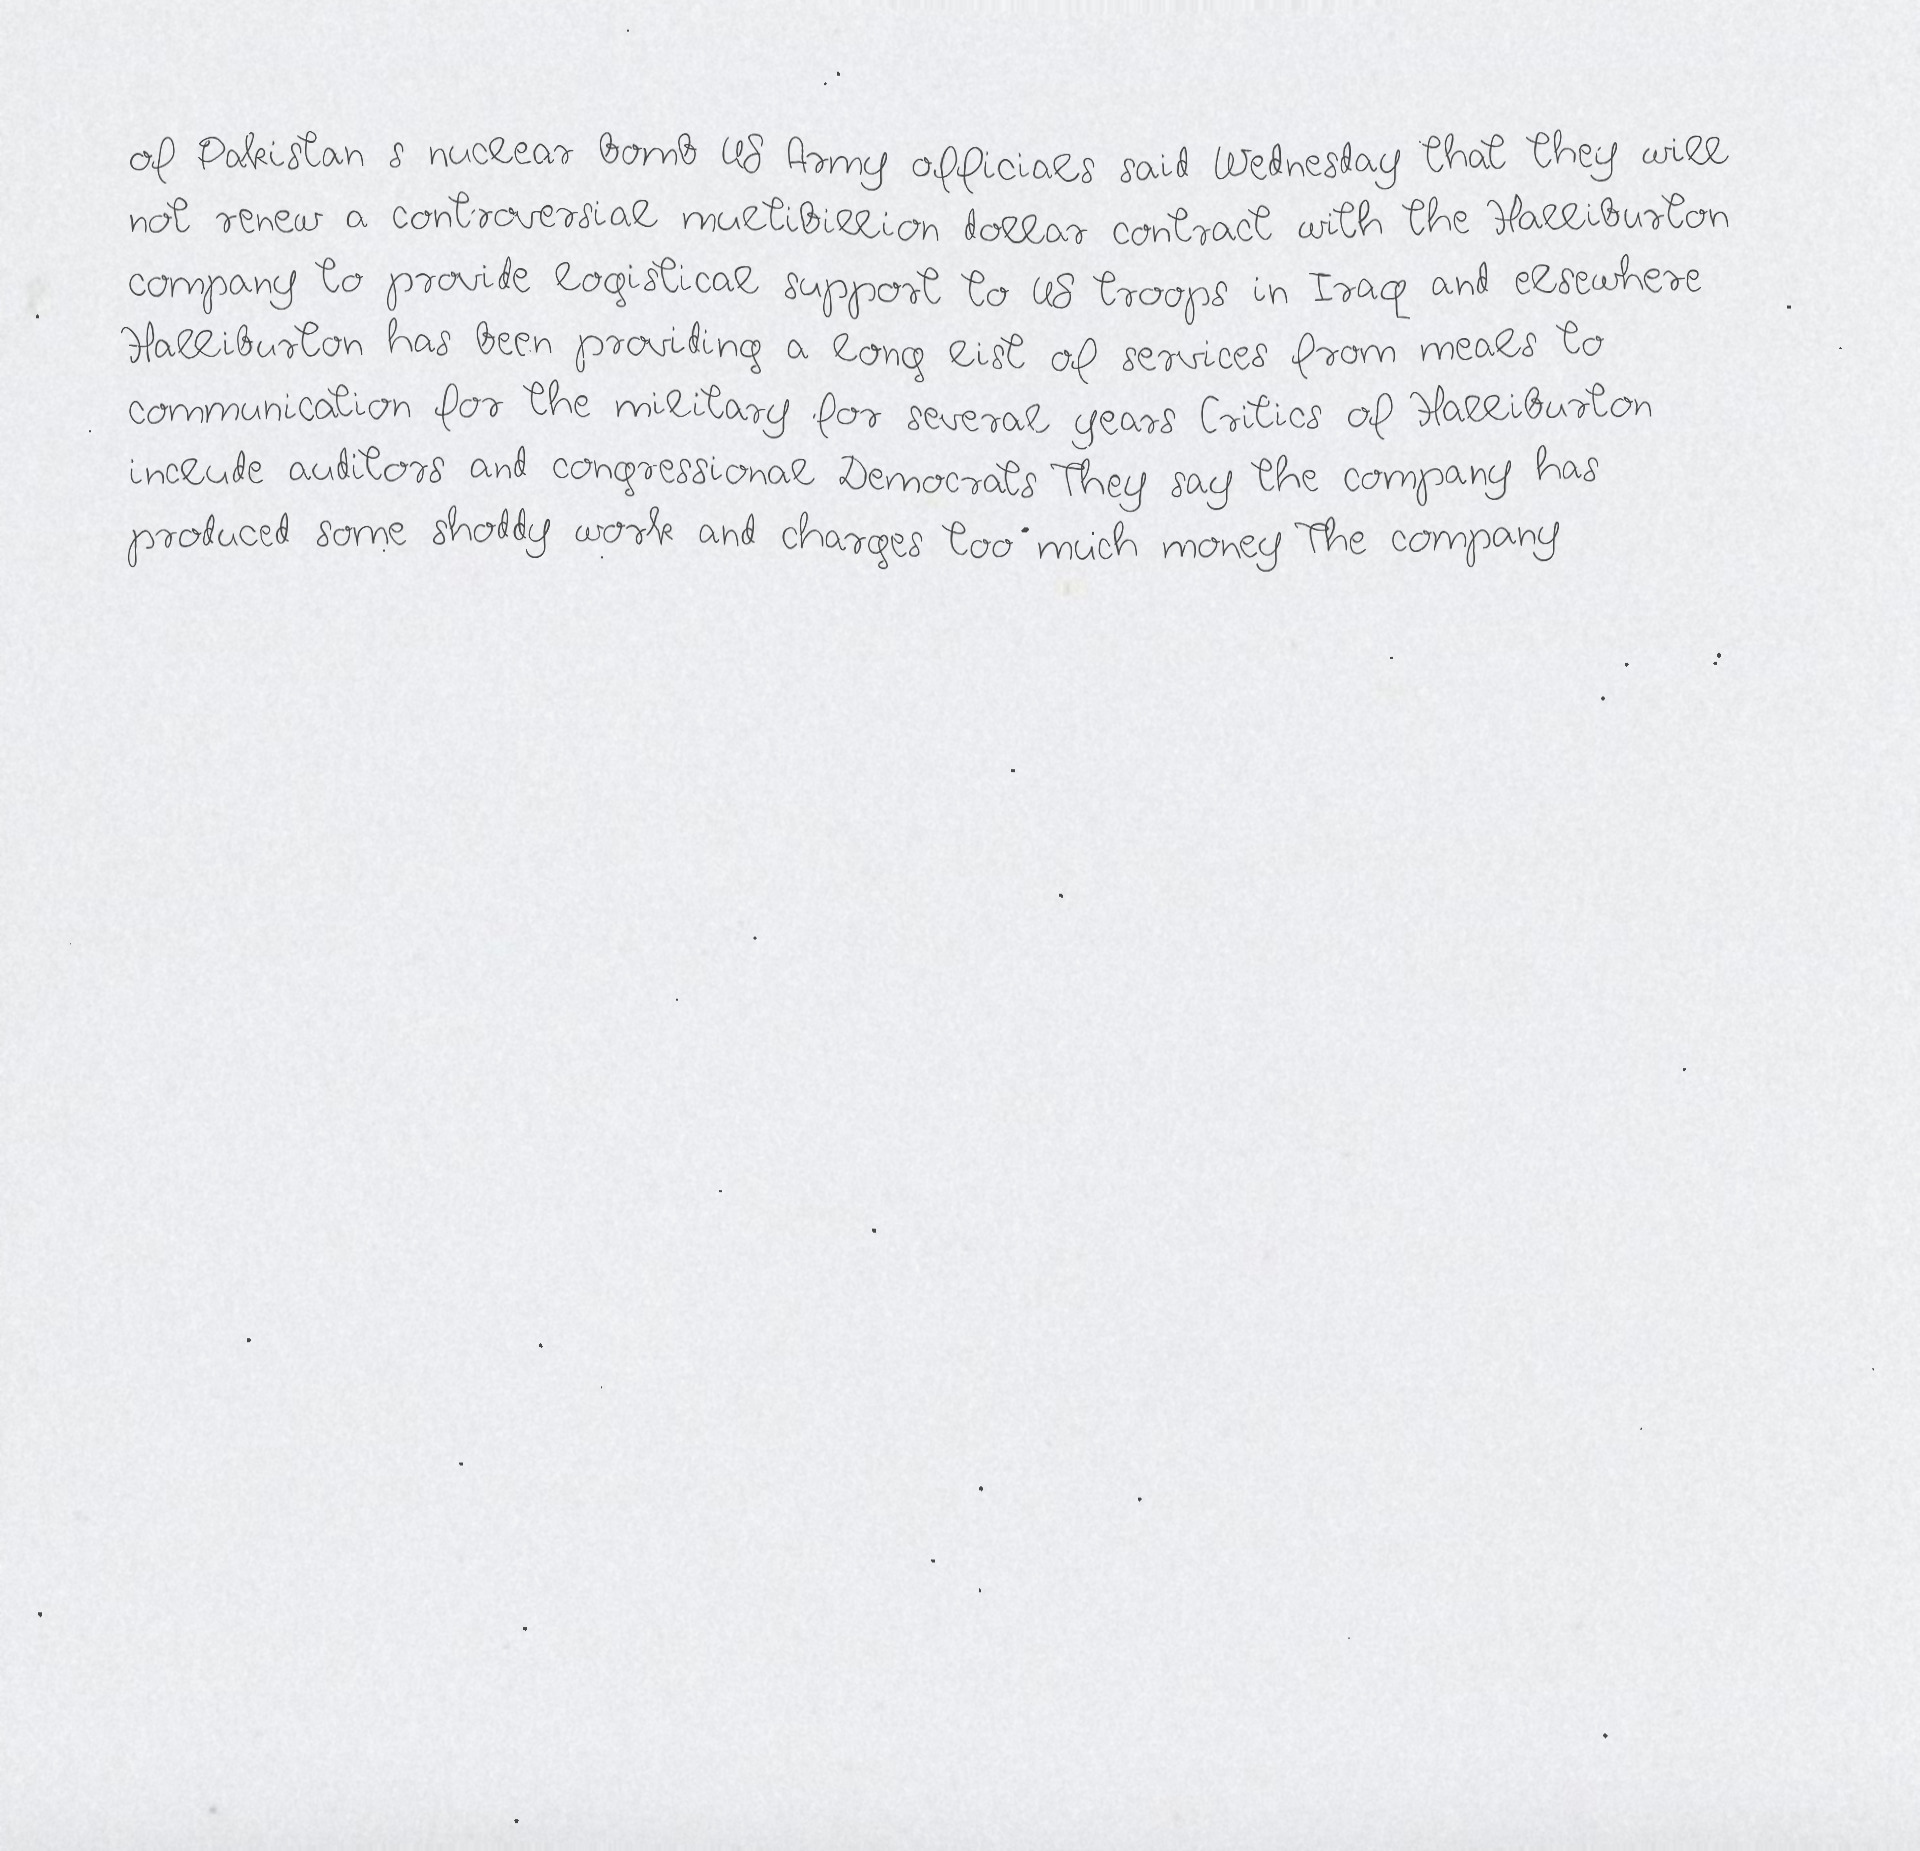 of Pakistan s nuclear bomb US Army officials said Wednesday that they will
not renew a controversial multibillion dollar contract with the Halliburton
company to provide logistical support to US troops in Iraq and elsewhere
Halliburton has been providing a long list of services from meals to
communication for the military for several years Critics of Halliburton
include auditors and congressional Democrats They say the company has
produced some shoddy work and charges too much money The company